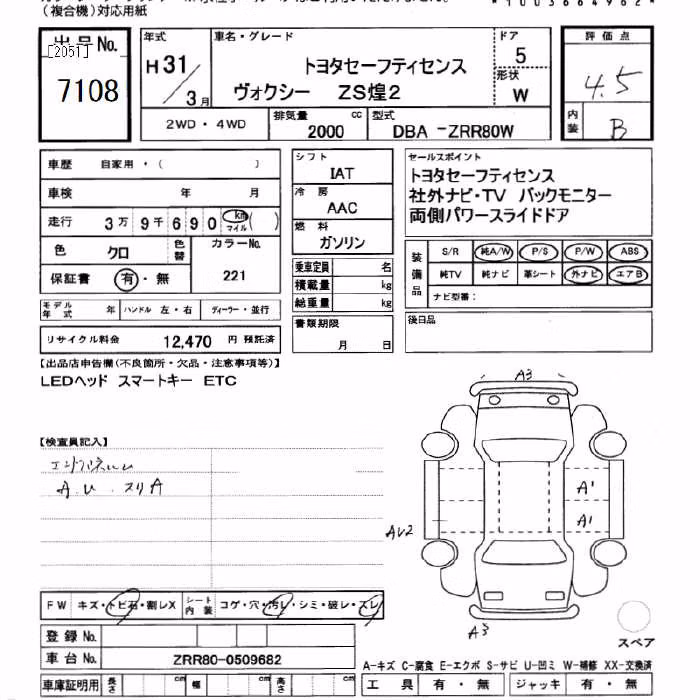 （複合機）対応用紙
*1003664962*
出品No.
[2051]
7108
年式
H 31 / 3 月
車名・グレード
トヨタセーフティセンス
ヴォクシー ZS煌2
ドア
5
形状
W
評価点
4.5
内装
B
2WD・4WD
排気量
2000 cc
型式
DBA -ZRR80W
車歴 自家用・( )
車検 年 月
走行 3万 9千 6 9 0 km マイル ( )
色 クロ
色替
カラーNo.
221
保証書 有・無
モデル年式 年
ハンドル 左・右
ディーラー・並行
リサイクル料金 12,470 円 預託済
シフト
IAT
冷房
AAC
燃料
ガソリン
乗車定員 名
積載量 kg
総重量 kg
書類期限
月 日
セールスポイント
トヨタセーフティセンス
社外ナビ・TV バックモニター
両側パワースライドドア
装備品
S/R 純A/W P/S P/W ABS
純TV 純ナビ 革シート 外ナビ エアB
ナビ型番：
後日品
【出品店申告欄(不良箇所・欠品・注意事項等)】
LEDヘッド スマートキー ETC
【検査員記入】
A.U スリA
A3
A1
A1
AU2
A3
スペア
FW キズ・トビ石・割レX
シート内装 コゲ・穴・汚レ・シミ・破レ・スレ
登録No.
車台No. ZRR80-0509682
車庫証明用 長さ cm 幅 cm 高さ cm
A-キズ C-腐食 E-エクボ S-サビ U-凹ミ W-補修 XX-交換済
工具 有・無
ジャッキ 有・無